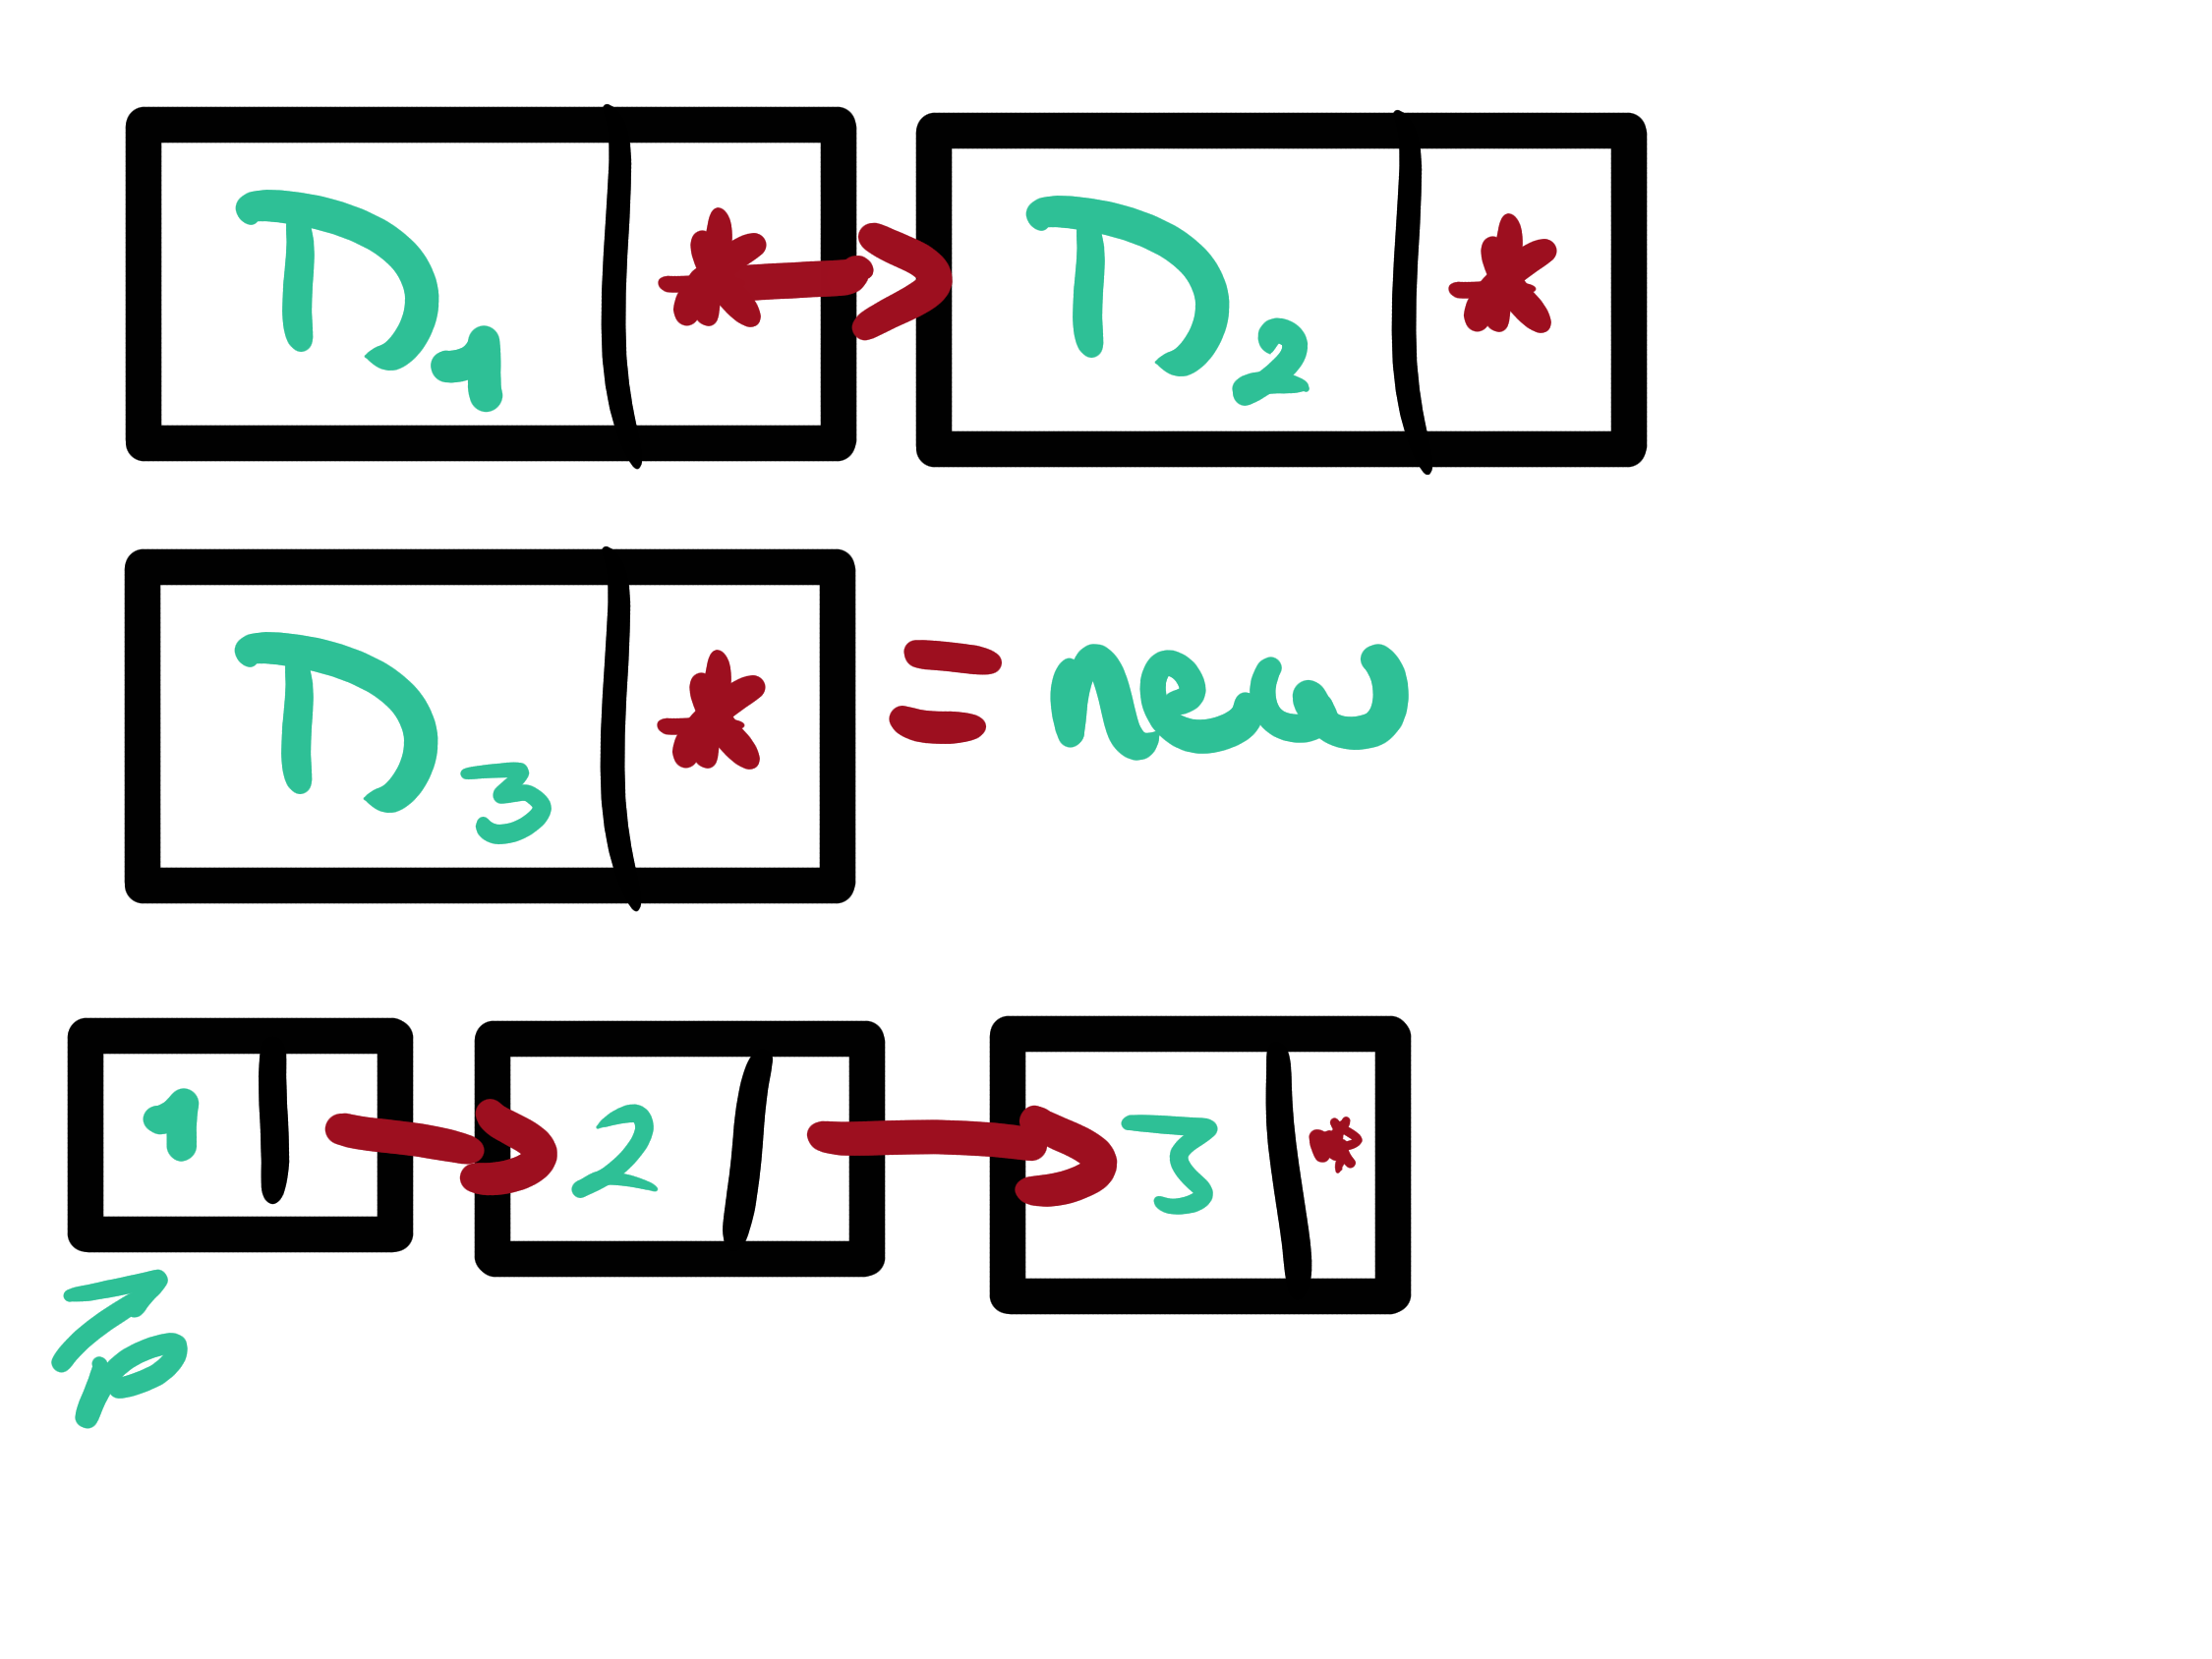 D1 * → D2 *
D3 * = new
1 → 2 → 3 *
p